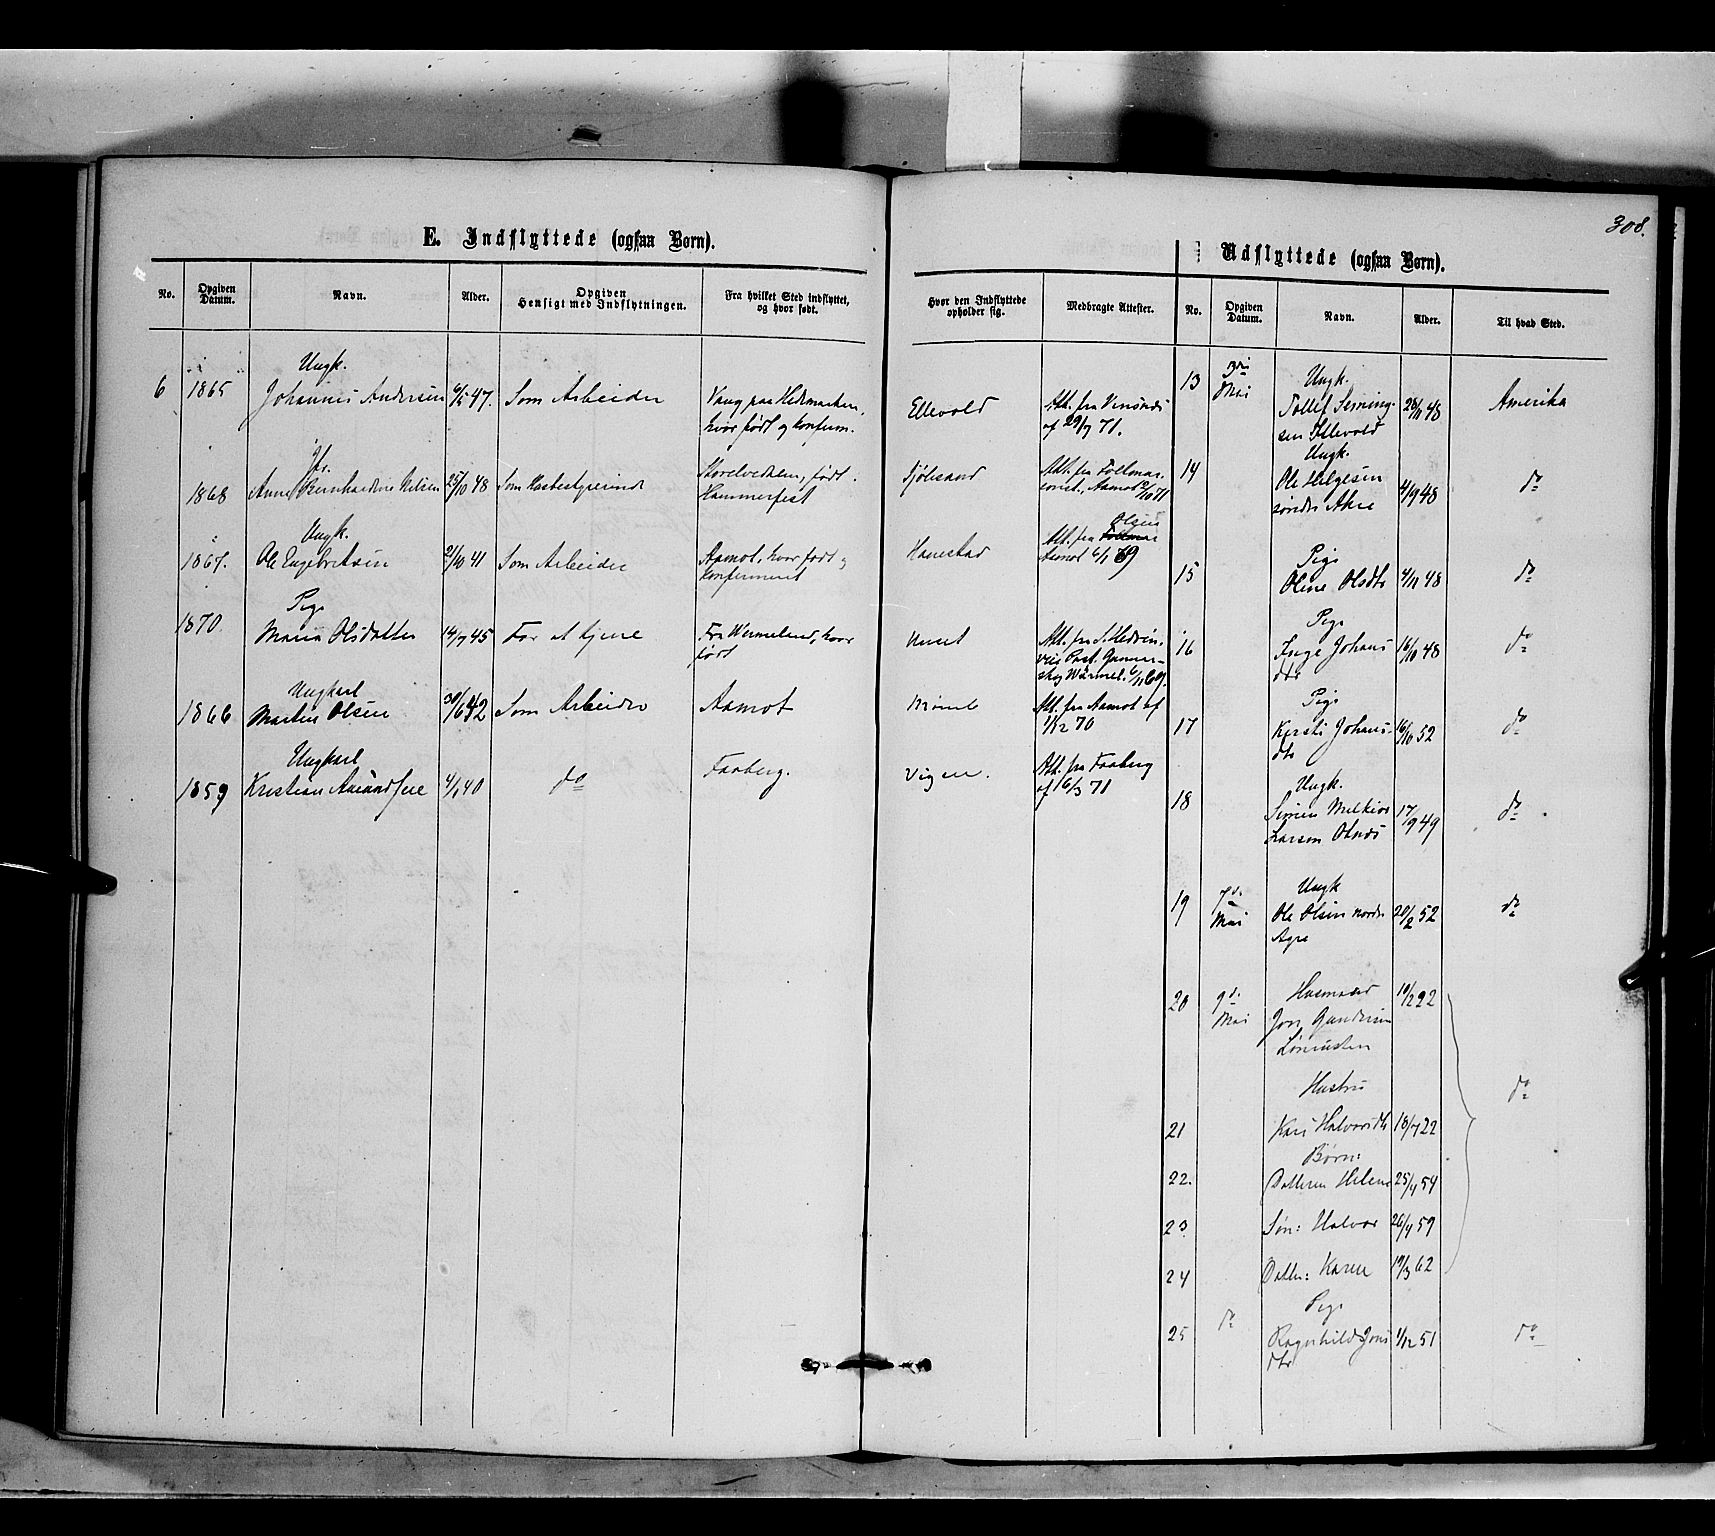 308.
E. Indflyttede (ogsaa Børn).
No.
Opgiven Datum.
Navn.
Alder.
Opgiven Hensigt med Indflytningen.
Fra hvilket Sted indflyttet, og hvor født.
Hvor den Indflyttede opholder sig.
Medbragte Attester.
Ungk.
6 1865 Johannes Andersen 6/5 47. Som Arbeider Vang paa Hedemarken, Ellevold Att. fra
hvor født og konfirm. af 29/7 71.
Jfr.
1868 Anne Bernhardine Nilsen 25/10 48 Som Husbestyrerinde Storelvedalen, født Att. fra
Hammerfest Aamot 12/10 71
Ungk. Olsen
1867. Ole Engebretsen 21/10 41 Som Arbeider Aamot, hvor født og Hanestad Att. fra
konfirmeret Aamot 6/1 69
Pige
1870. Maria Olsdatter 14/7 45 For at tjene Fra Wermeland, hvor Att. fra
født
Ungkarl
1866 Martin Olsen 30/6 42 Som Arbeider Aamot Att. fra Aamot af
1/12 70
Ungkarl
1859 Kristian 4/1 40 do Faaberg. Vigen. Att. fra Faaberg
af 16/3 71
Udflyttede (ogsaa Børn).
No.
Opgiven Datum.
Navn.
Alder.
Til hvad Sted.
13 3die Mai Ungk.
Tollef Semming- 28/11 48 Amerika
sen Ellevold
14 Ungk.
Ole Helgesen 4/9 48 do
søndre Akre
15 Pige
Oline Olsdtr 4/11 48 do
16 Pige
Inge Johans 16/10 48 do
dtr
17 Pige
Kjersti Johans- 16/10 52 do
dtr
18 Ungk.
Simen Melkior 17/9 49 do
Larsen
19 7d. Mai Ungk
Ole Olsen nordre 20/2 52 do
Agre
20 9d. Mai Husmand 10/2 22
Jon
Hustru do
21 Kari Halvorsdtr 18/7 22
Børn:
22. Datteren Helene 25/4 54
23. Søn: Halvor 26/4 59
24 Datter: Karen 19/3 62
Pige
25 do Ragnhild Jons 1/12 51 do
dtr